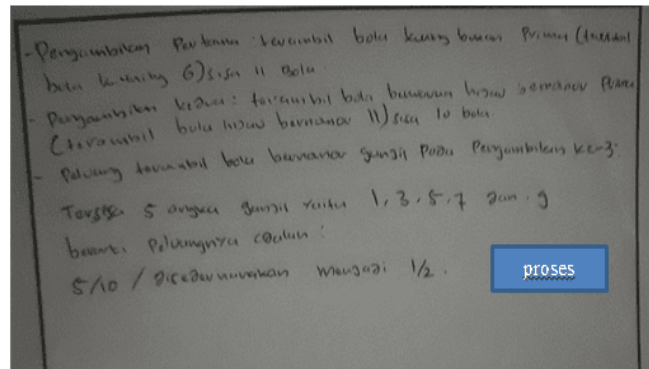 - Pengambilan Pertama : terambil bola kuning bukan Prima (
bola kuning 6) sisa 11 Bola
- Pengambilan kedua : terambil bola berwarna hijau bernomor Prima
(terambil bola hijau bernomor 11) sisa 10 bola
- Peluang terambil bola bernomor ganjil Pada Pengambilan ke-3:
Tersisa 5 angka ganjil yaitu 1, 3, 5, 7 dan 9
berarti Peluangnya adalah :
5/10 / disederhanakan menjadi 1/2.
proses